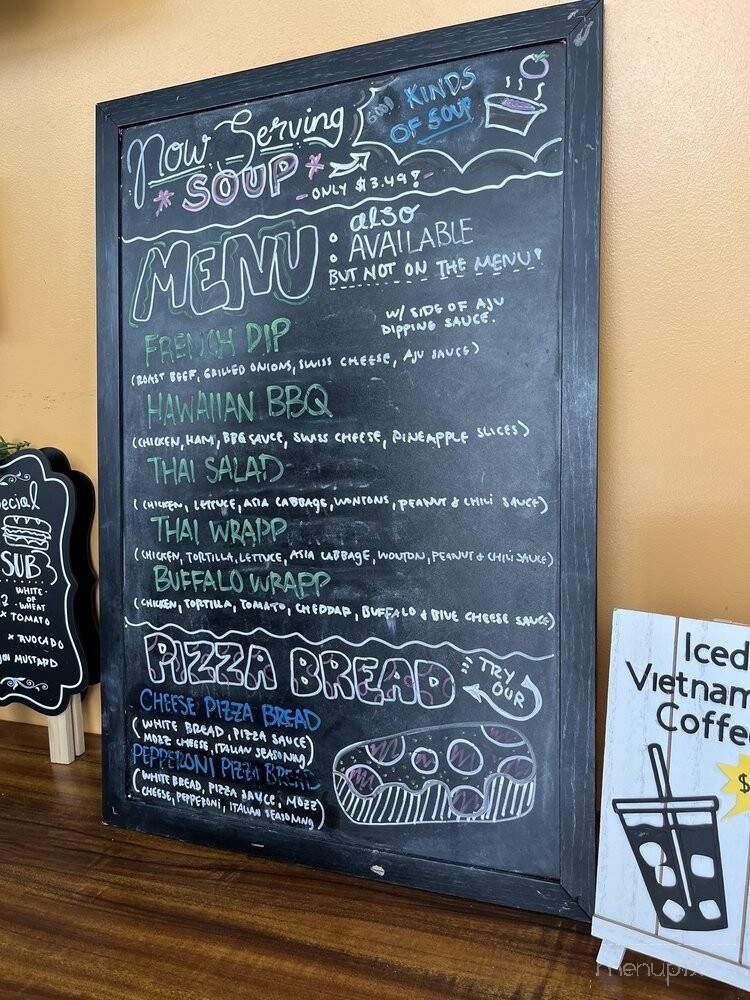 Now Serving
*SOUP*
ONLY $3.49!
KINDS
OF SOUP
MENU
: also
: AVAILABLE
BUT NOT ON THE MENU!
FRENCH DIP
W/ SIDE OF AJU
DIPPING SAUCE.
(ROAST BEEF, GRILLED ONIONS, SWISS CHEESE, AJU SAUCE)
HAWAIIAN BBQ
(CHICKEN, HAM, BBQ SAUCE, SWISS CHEESE, PINEAPPLE SLICES)
THAI SALAD
(CHICKEN, LETTUCE, ASIA CABBAGE, WONTONS, PEANUT & CHILI SAUCE)
THAI WRAPP
(CHICKEN, TORTILLA, LETTUCE, ASIA CABBAGE, WONTON, PEANUT & CHILI SAUCE)
BUFFALO WRAPP
(CHICKEN, TORTILLA, TOMATO, CHEDDAR, BUFFALO & BLUE CHEESE SAUCE)
PIZZA BREAD
TRY
OUR
CHEESE PIZZA BREAD
(WHITE BREAD, PIZZA SAUCE)
MOZZ CHEESE, ITALIAN SEASONING)
PEPPERONI PIZZA BREAD
(WHITE BREAD, PIZZA SAUCE, MOZZ
CHEESE, PEPPERONI, ITALIAN SEASONING)
ecial
SUB
WHITE
OR
WHEAT
x TOMATO
x AVOCADO
MUSTARD
Iced
Vietnam
Coffe
$
menupix